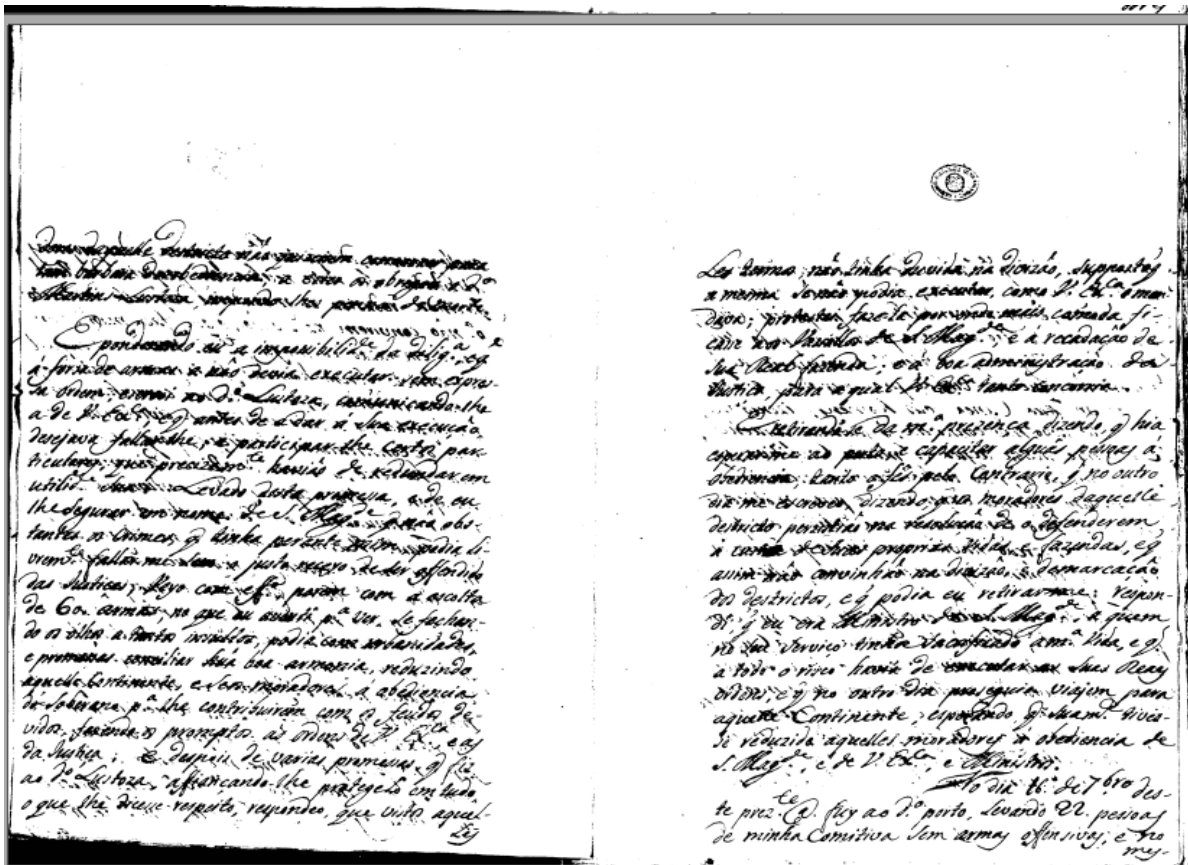 daquelle destricto não
tam barbara desobediencia, e
Martins Lustoza
Ponderando eu a imposibilid.e da delig.a, e q̃
á força de armas a não devia executar sem expres-
sa ordem, escrevi ao d.o Lustoza, comunicando-lhe
a de V. Ex.a, e q̃ antes de a dar a sua execução,
desejava fallar-lhe, e participar-lhe certos par-
ticulares, que precizam.te havias de redundar em
utilid.e Levado desta promessa, e de eu
lhe segurar em nome de S. Mag.de q̃ não obs-
tantes os Crimes, q̃ tinha podia li-
vrem.te fallar-me sem o justo receyo de ser offendido
das Justiças; Veyo com ef.o, porem com a escolta
de 60. armas, no que eu p.a ver, se fechan-
do os olhos a tantos insultos, podia com urbanidades,
e promessas conciliar húa boa armonia, reduzindo
aquelle Continente, e seos moradores a obediencia
do Soberano p.a lhe contribuirem com os feudos de-
vidos, fazendo-os promptos ás ordens de V. Ex.ca, e as
da Justiça; E despois de varias promessas, q̃ fiz
ao d.o Lustoza, affiancando-lhe protegelo em tudo
o que lhe dicese respeito, respondeo, que visto aquel-
les
Les termos, não tinha duvida na divizão, suppostoq̃
a mesma se não podia executar, como V. Ex.ca o man-
dava; protestei faze-la por modo mais comodo fi-
casse aos Vassallos de S. Mag.de e á recadação de
Sua Real fazenda, e á boa administração da
Justica, para a qual V. Ex.ca tanto concorria.
Retirando-se da m.a prezença, dizendo, q̃ hia
e capacitar algúas pessoas á
obediencia, tanto o fes pelo Contrario, q̃ no outro
dia me escreveo, dizendo, q̃ os moradores daquelle
destricto persistião na resolução de o defenderem
á custa de suas proprias vidas, e fazendas, e q̃
assim não convinhão na divizão, e demarcação
dos destrictos, e q̃ podia eu retirarme: respon-
di q̃ eu era Ministro de S. Mag.de, á quem
no seu serviço tinha sacrificado a m.a Vida, e q̃
a todo o risco havia de executar as suas Reaes
ordens, e q̃ no outro dia proseguia viajem para
aquelle Continente, esperando q̃ Suam.ce tives-
se reduzido aquelles moradores á obediencia de
S. Mag.de, e de V. Ex.ca, e Ministros.
No dia 16. de 7bro des-
te prez.te fuy ao d.o porto, Levando 22. pessoas
de minha Comitiva sem armas offensivas, e no
mes-